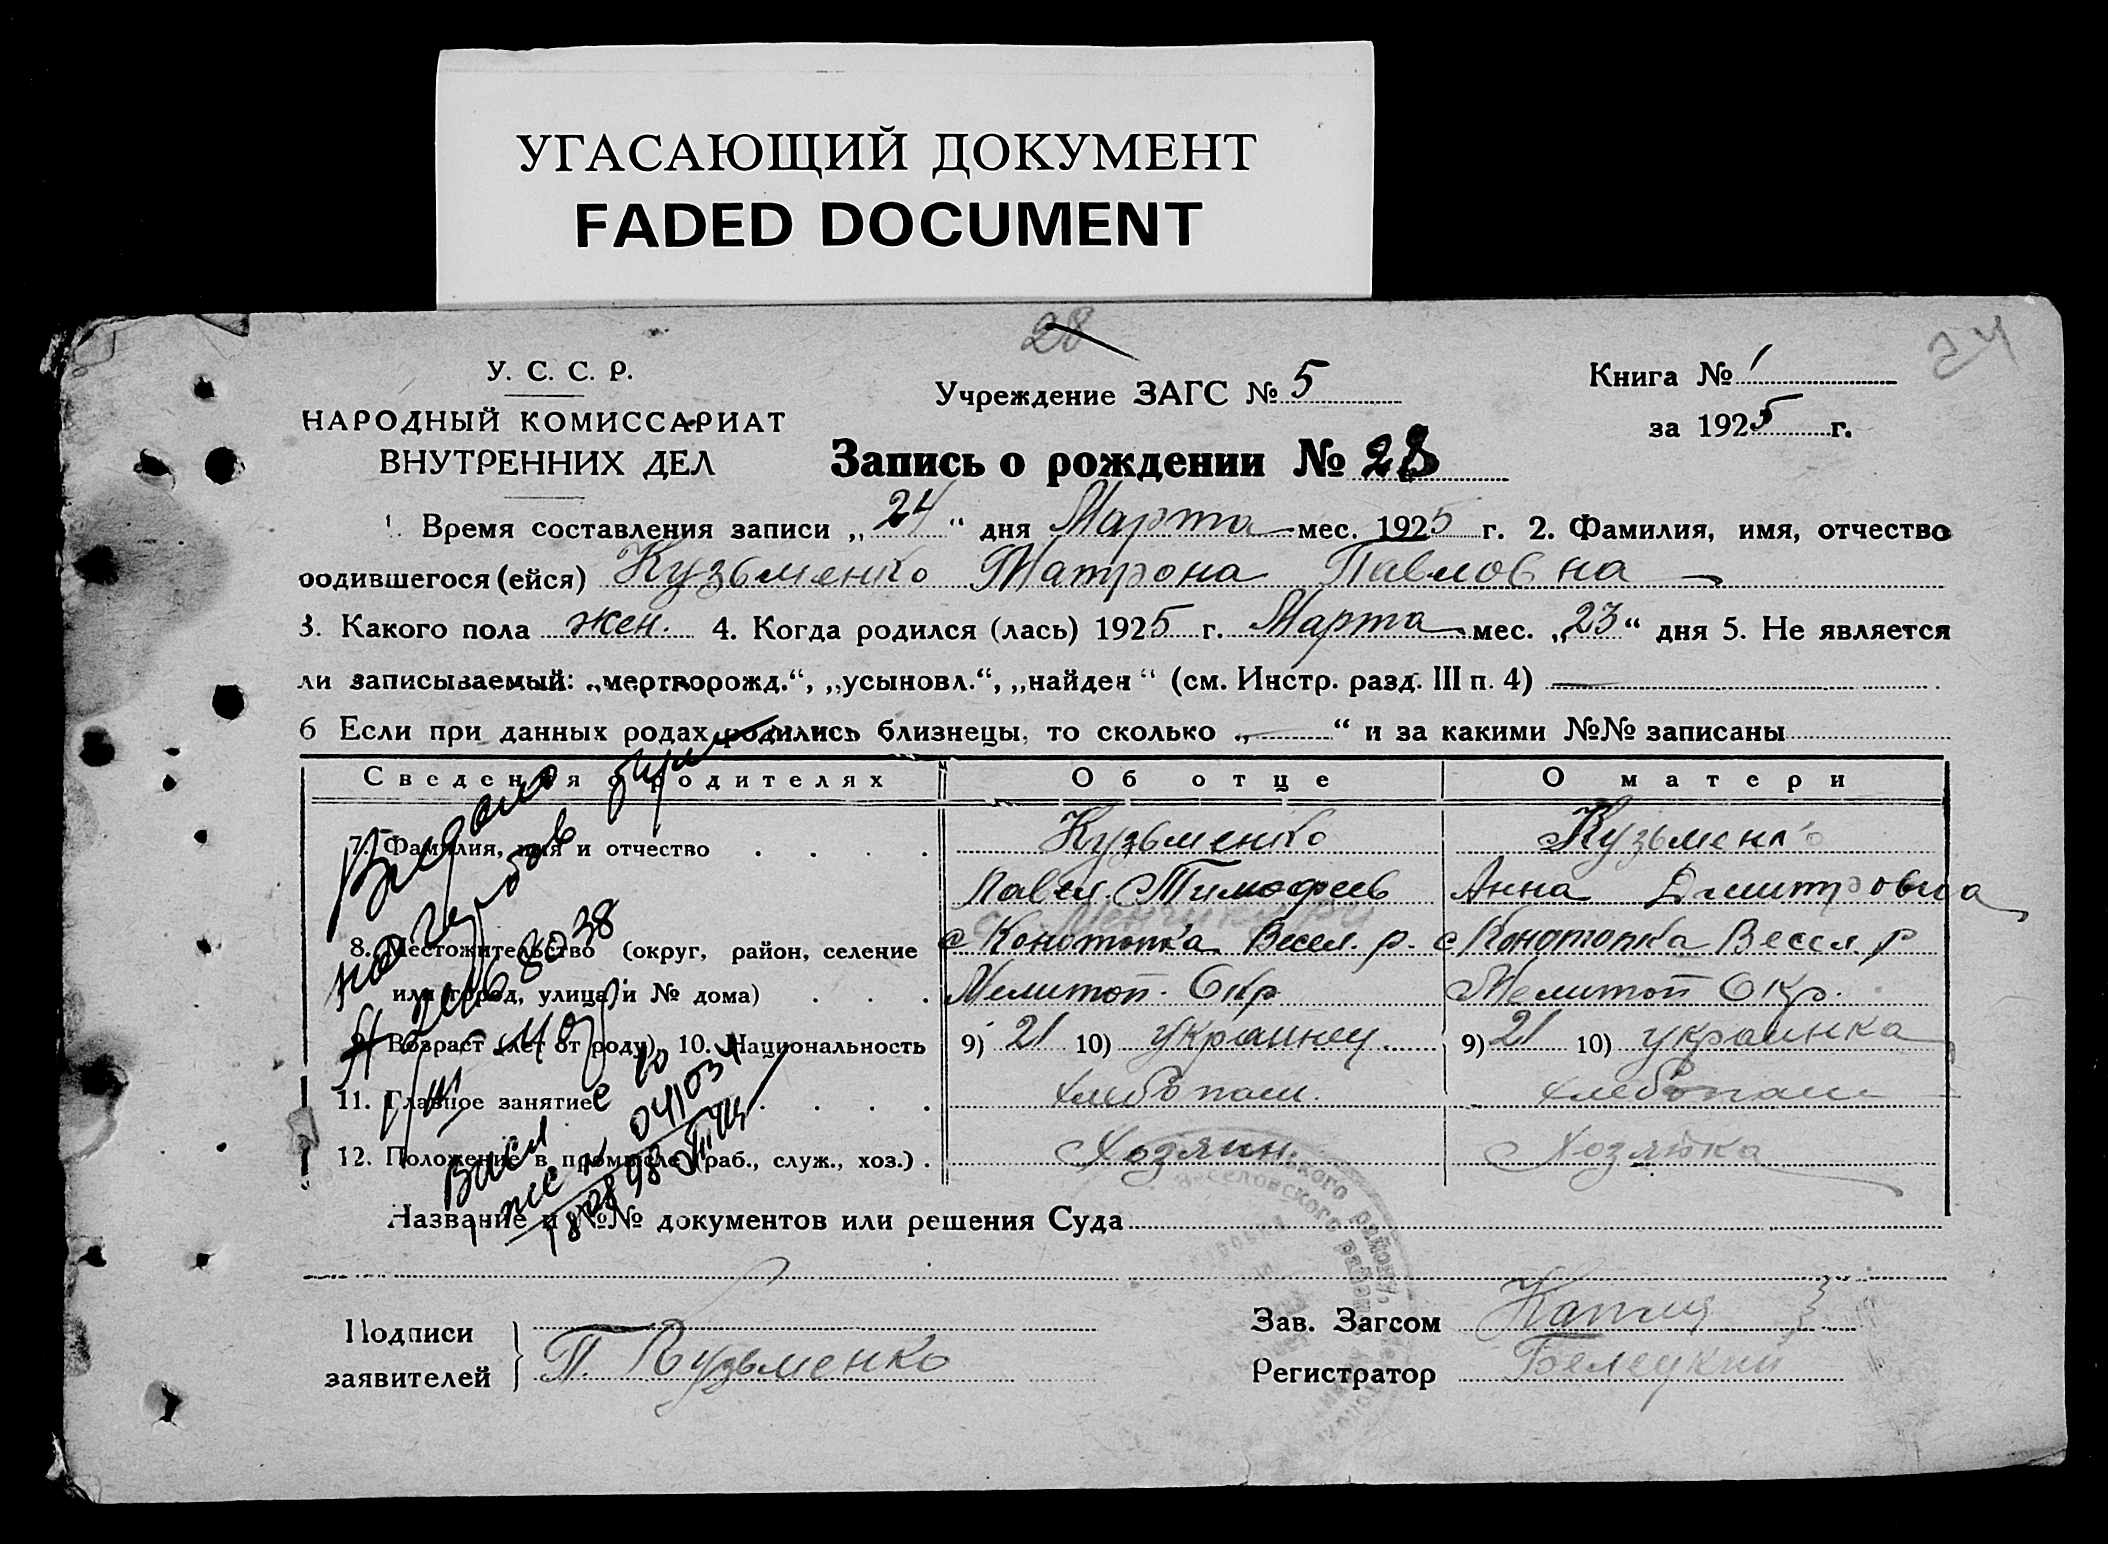 УГАСАЮЩИЙ ДОКУМЕНТ
FADED DOCUMENT
28
24
У. С. С. Р.
НАРОДНЫЙ КОМИССАРИАТ
ВНУТРЕННИХ ДЕЛ
Учреждение ЗАГС № 5
Книга № 1
за 1925 г.
Запись о рождении № 28
1. Время составления записи „24“ дня Марта мес. 1925 г. 2. Фамилия, имя, отчество
родившегося (ейся) Кузьменко Матрона Павловна
3. Какого пола жен. 4. Когда родился (лась) 1925 г. Марта мес. „23“ дня 5. Не является
ли записываемый: „мертворожд.“, „усыновл.“, „найден“ (см. Инстр. разд. III п. 4) —
6 Если при данных родах родились близнецы, то сколько „—“ и за какими №№ записаны
Сведения о родителях Об отце О матери
7. Фамилия, имя и отчество Кузьменко Кузьменко
Павел Тимофеев Анна Дмитровна
8. Местожительство (округ, район, селение с Конотопка Весел. р. с Конотопка Весел. р
или город, улица и № дома) Мелитоп. Окр Мелитоп Окр.
9. Возраст (лет от роду) 10. Национальность 9) 21 10) украинец. 9) 21 10) украинка
11. Главное занятие хлебопаш. хлебопаш
12. Положение в промысле (раб., служ., хоз.) Хозяин. Хозяйка
Название и №№ документов или решения Суда
Подписи
заявителей
П. Кузьменко
Зав. Загсом
Регистратор Белецкий